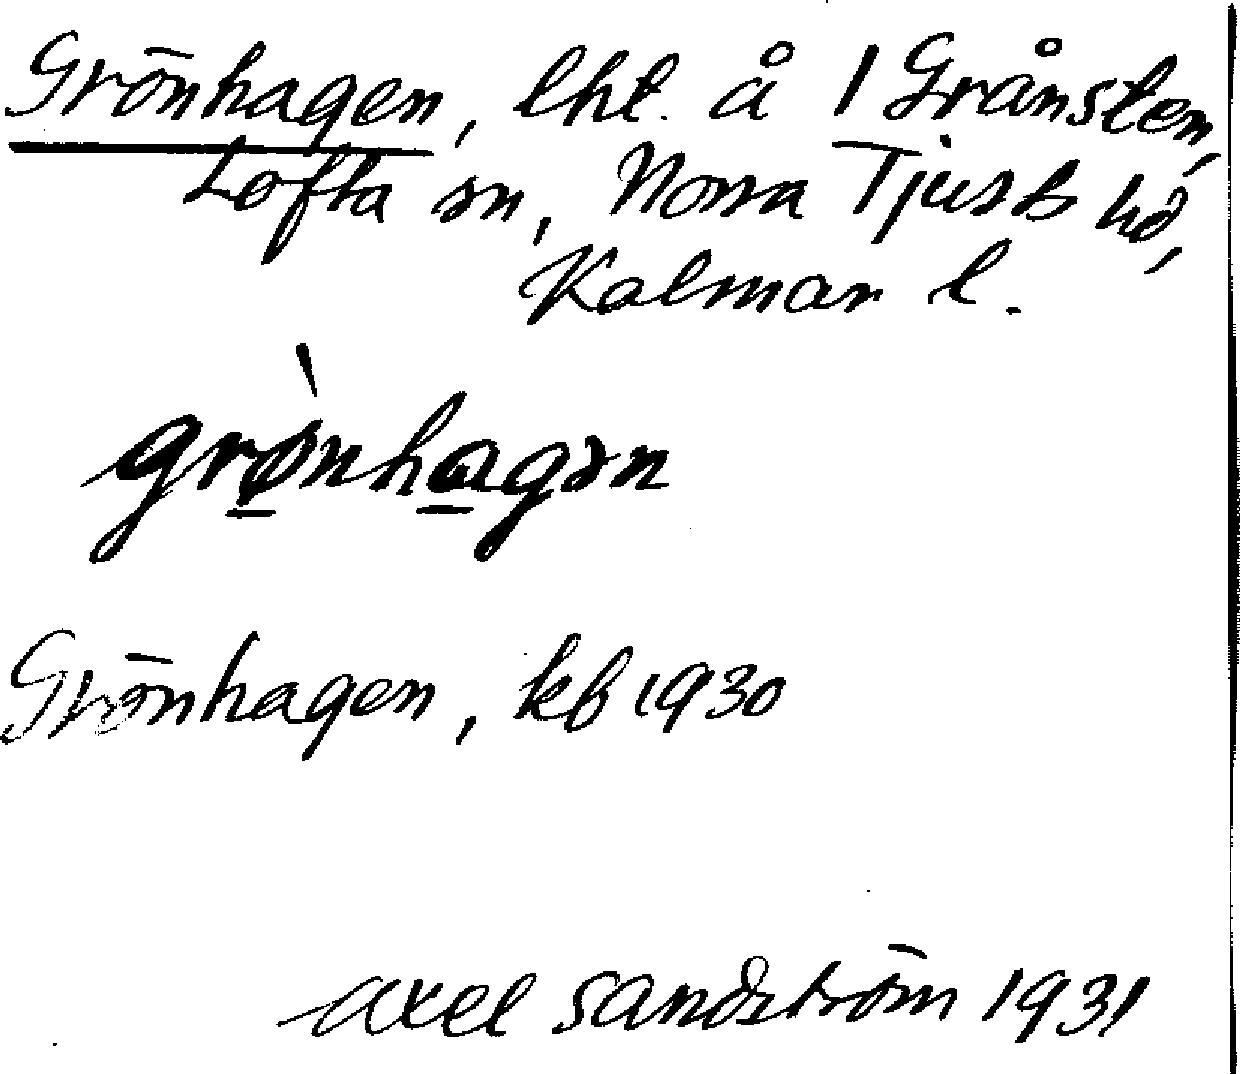 Grönhagen, lht. å 1 Grånsten,
Lofta sn, Norra Tjusts hd,
Kalman l.
grø̀nhagən
Grönhagen, kb 1930
Axel Sandström 1931